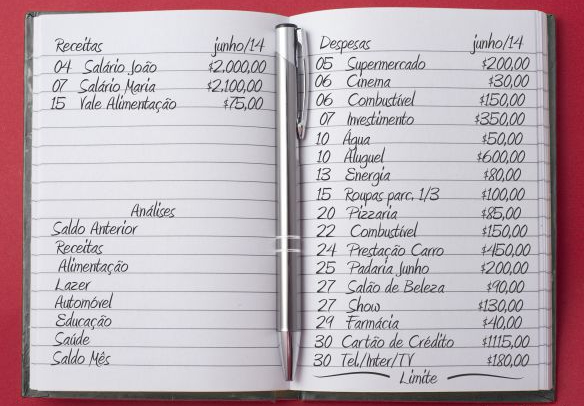 Receitas junho/14
04 Salário João $2.000,00
07 Salário Maria $2.100,00
15 Vale Alimentação $75,00
Análises
Saldo Anterior
Receitas
Alimentação
Lazer
Automóvel
Educação
Saúde
Saldo Mês
Despesas junho/14
05 Supermercado $200,00
06 Cinema $30,00
06 Combustível $150,00
07 Investimento $350,00
10 Água $50,00
10 Aluguel $600,00
13 Energia $80,00
15 Roupas parc. 1/3 $100,00
20 Pizzaria $85,00
22 Combustível $150,00
24 Prestação Carro $450,00
25 Padaria Junho $200,00
27 Salão de Beleza $90,00
27 Show $130,00
29 Farmácia $40,00
30 Cartão de Crédito $1115,00
30 Tel/Inter/TV $180,00
Limite